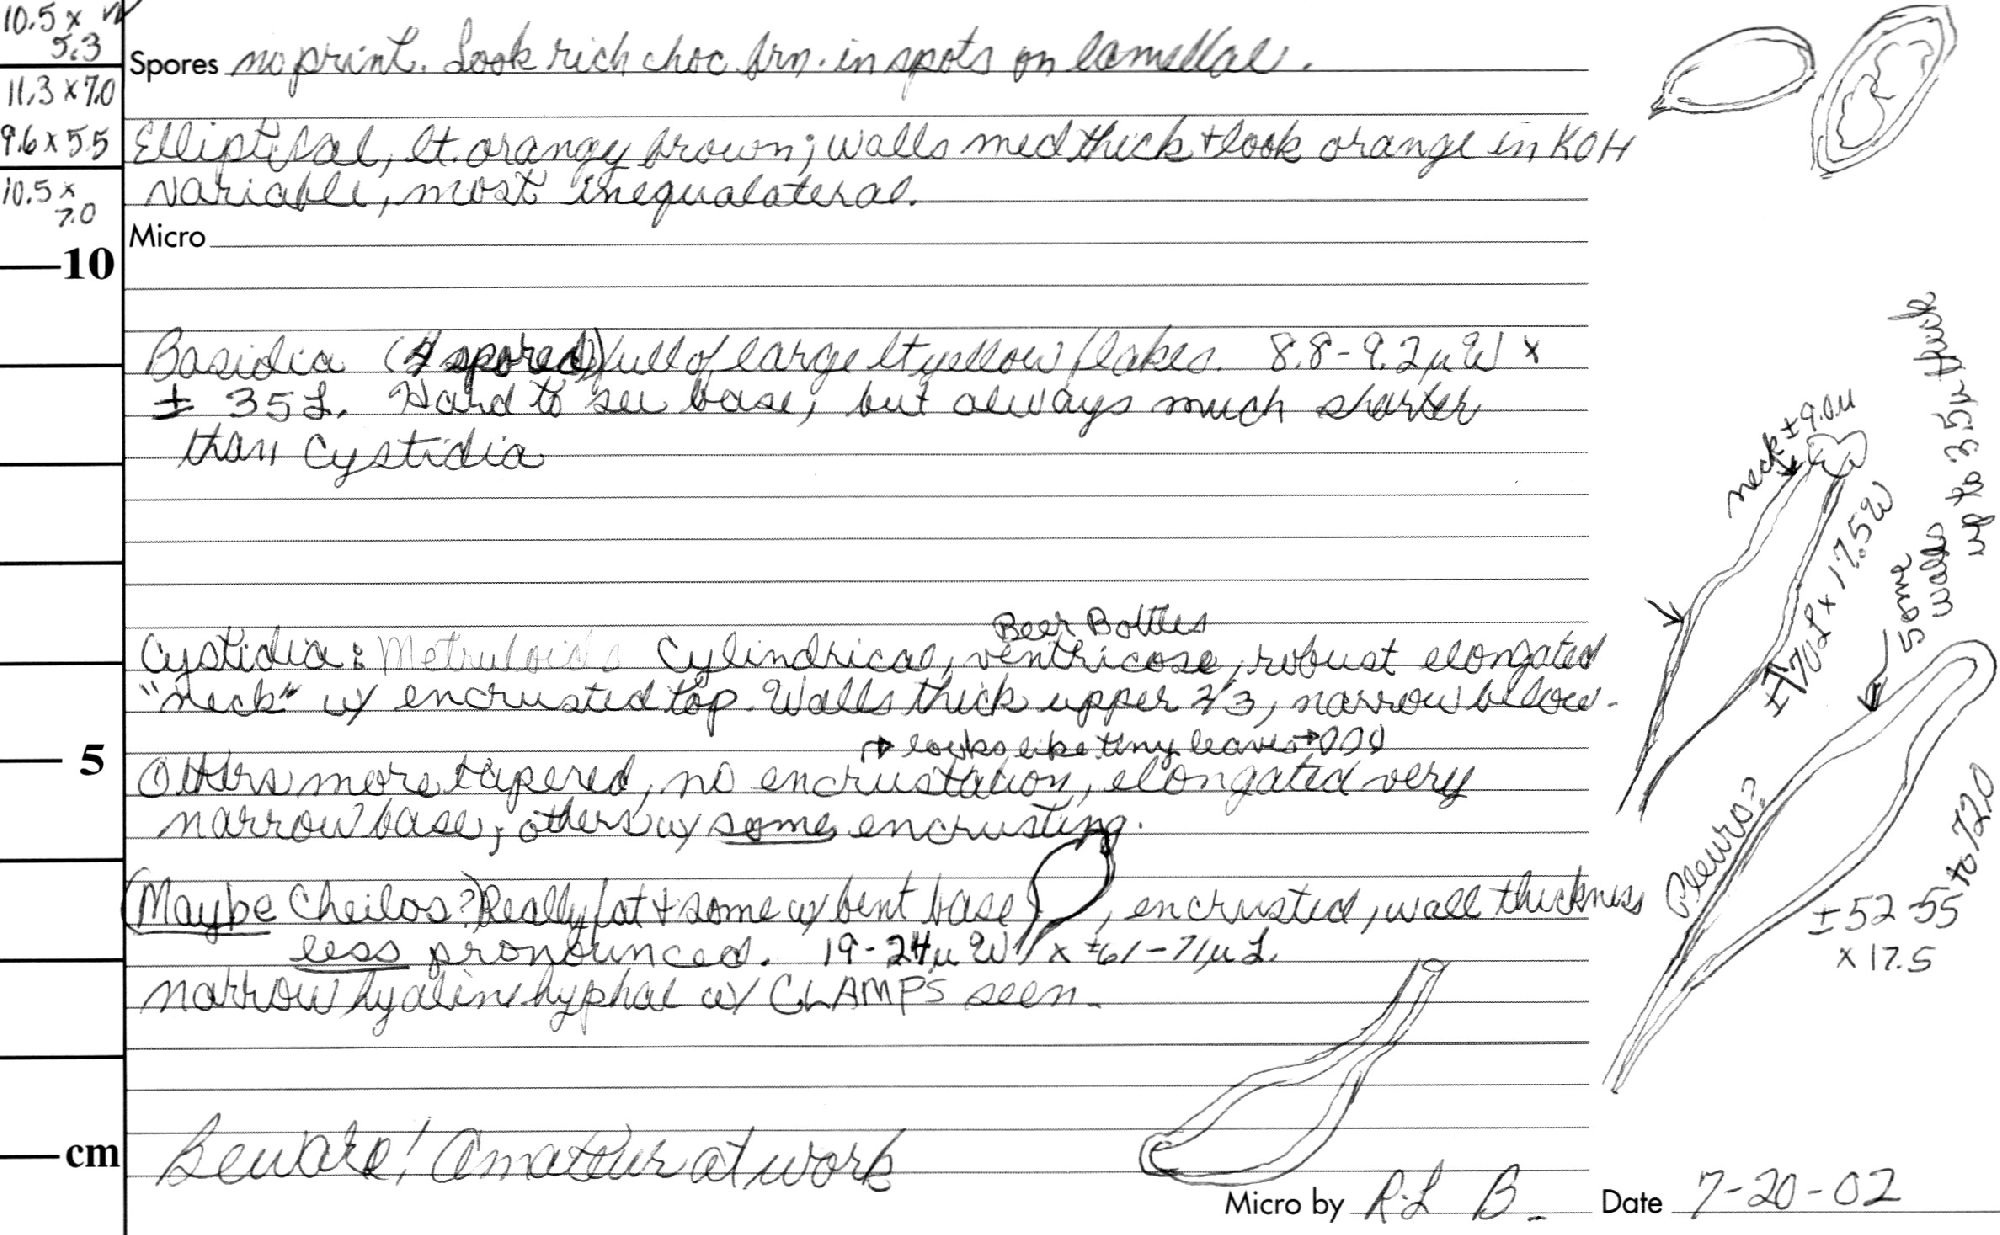 10.5 x
5.3
11.3 x 7.0
9.6 x 5.5
10.5 x
7.0
Spores no print. Look rich choc brn. in spots on lamellae.
Elliptical, lt. orangy brown; walls med thick + look orange in KOH
variable, most inequalateral.
Micro
10
Basidia (4 spored) full of large lt yellow flakes. 8.8-9.2µ W x
± 35 L. Hard to see base, but always much shorter
than Cystidia
Beer Bottles
Cystidia: Metruloids Cylindrical, ventricose, robust elongated
"neck" w/ encrusted top. Walls thick upper 2/3, narrow below.
→ looks like tiny leaves →
5
Others more tapered, no encrustation, elongated very
narrow base, others w/ some encrusting.
(Maybe Cheilos?) Really fat + some w/ bent base , encrusted, wall thickness
less pronounced. 19-24µ W x ±61-71µ L.
narrow hyalin hyphae w/ CLAMPS seen.
cm
Beware! Amateur at work
Micro by R.L B. Date 7-20-02
neck ± 9.0µ
±70L x 17.5W
some
walls
up to 3.5µ thick
Pleuros?
±52-55 to 72.0
x 17.5